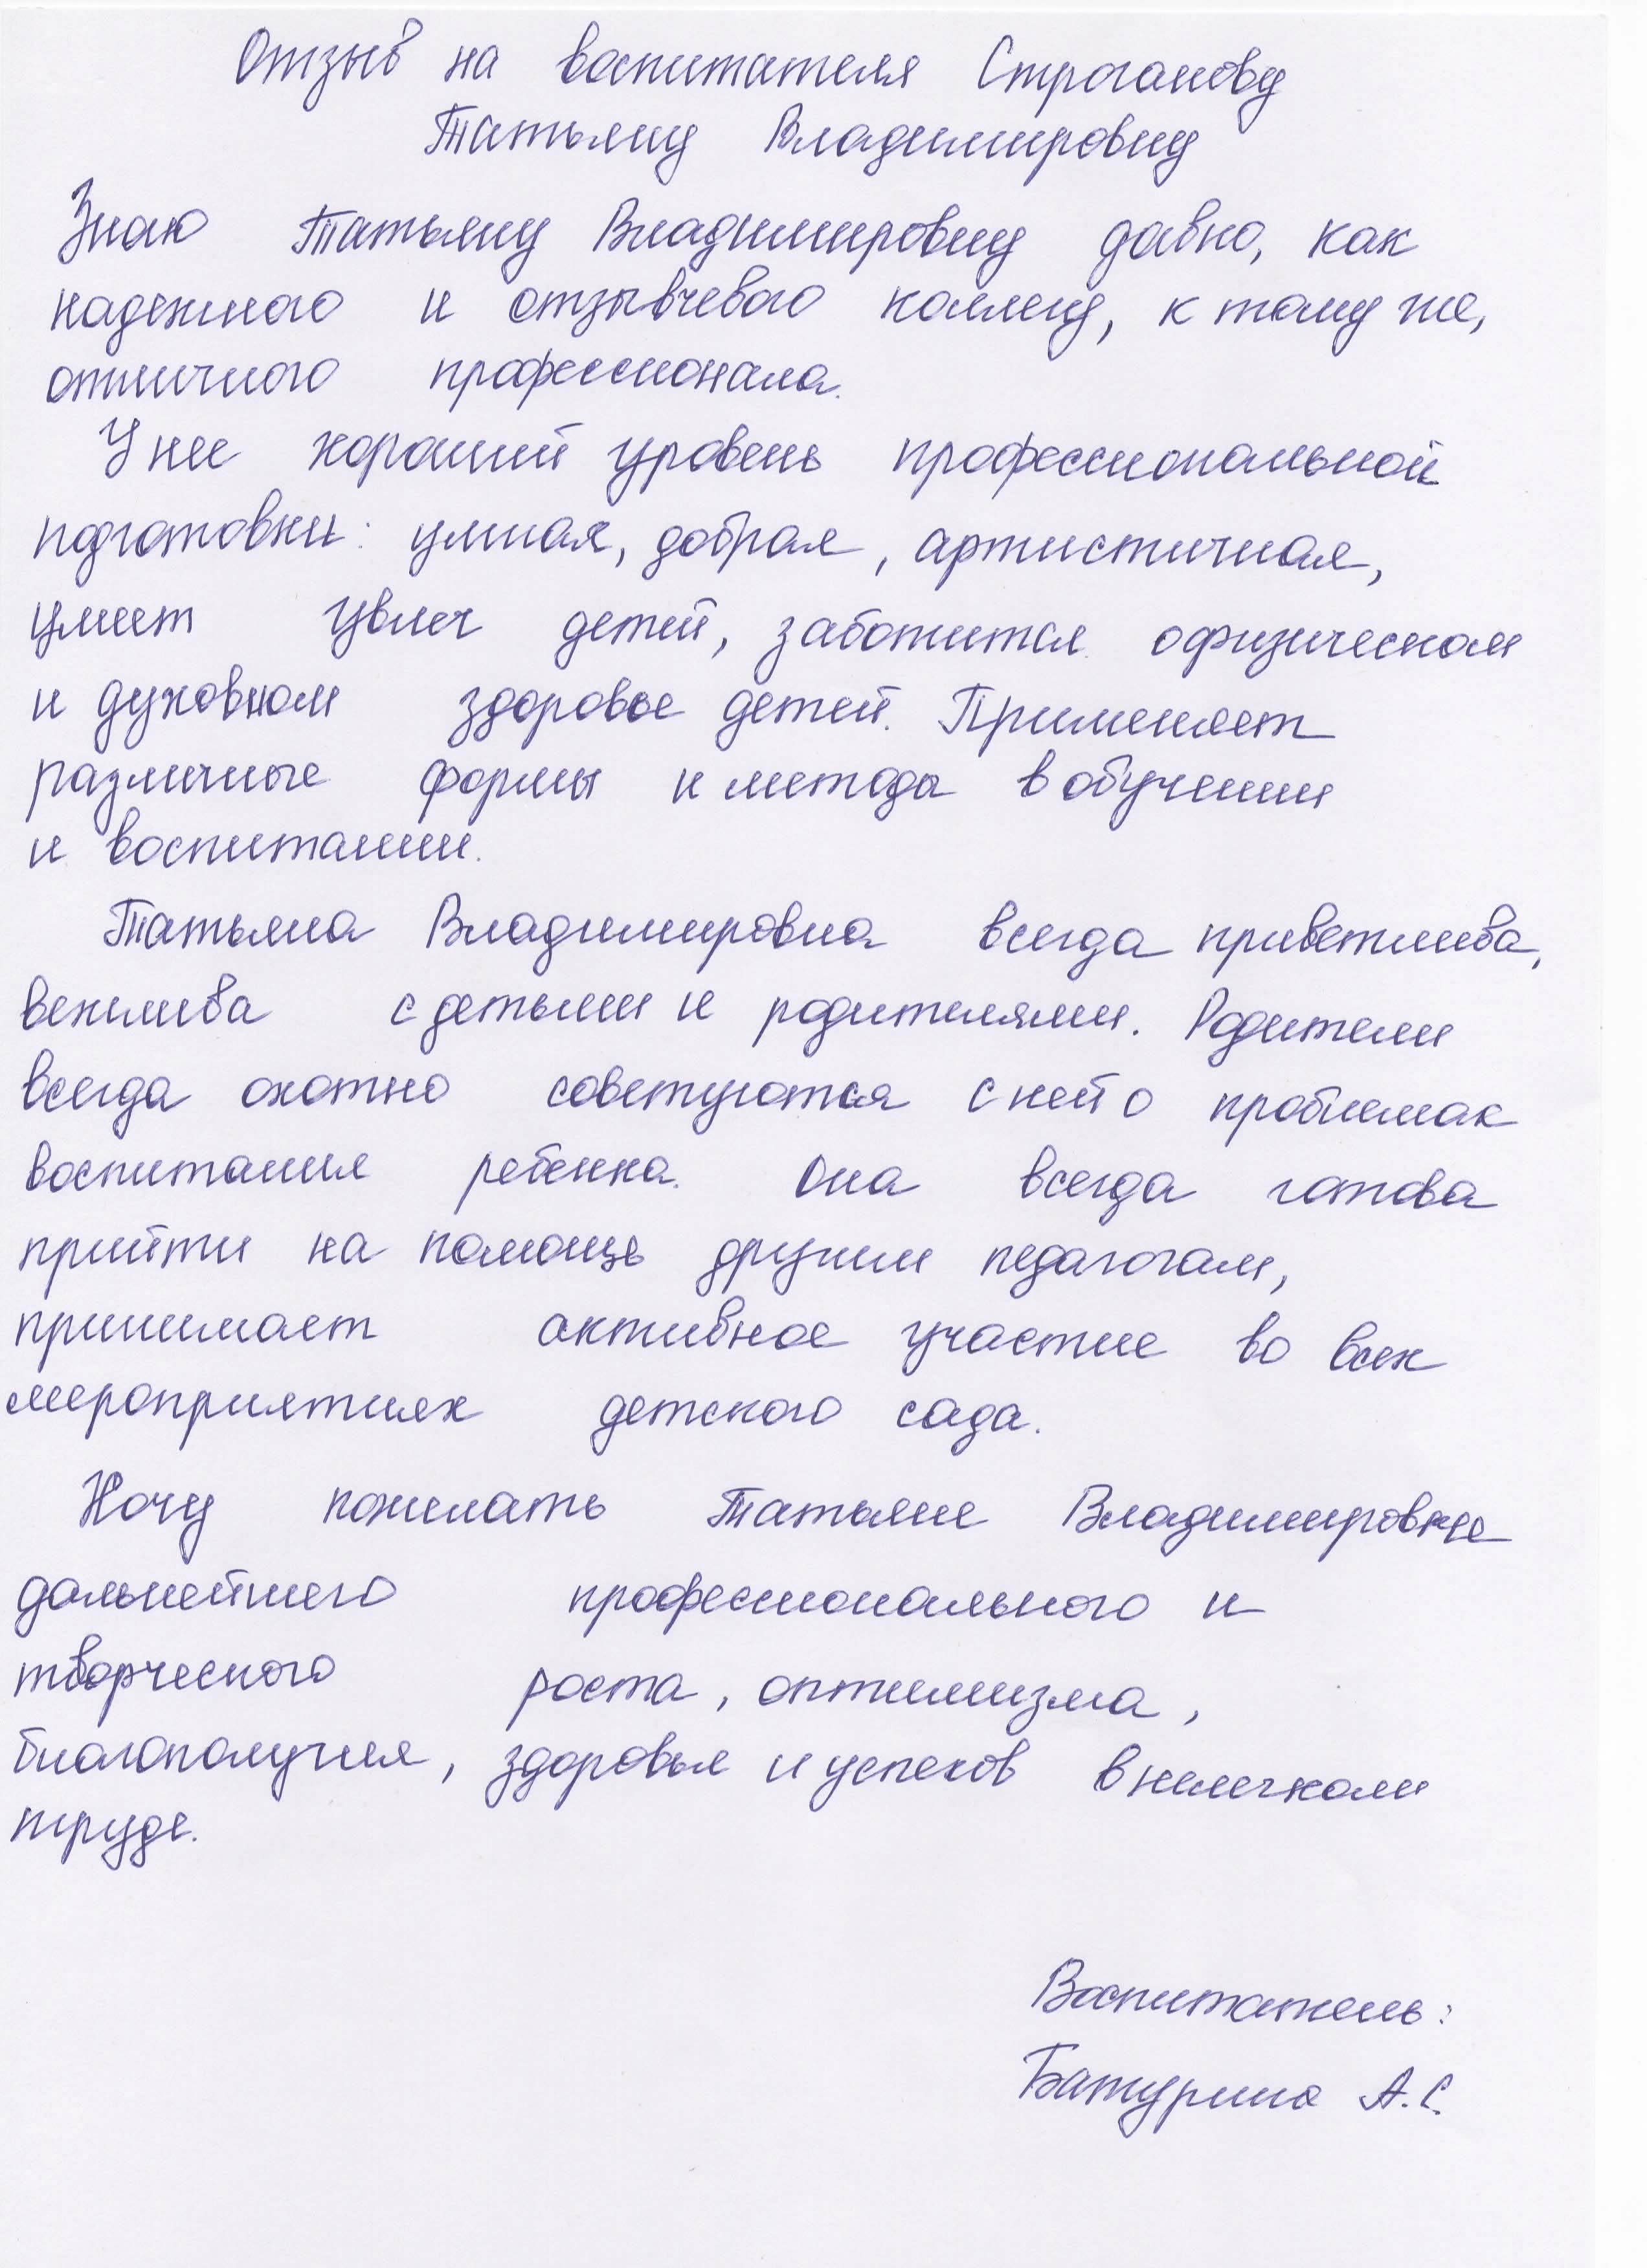 Отзыв на воспитателя Строганову
Татьяну Владимировну
Знаю Татьяну Владимировну давно, как
надежного и отзывчевого коллегу, к тому же,
отличного профессионала.
У нее хороший уровень профессиональной
подготовки: умная, добрая, артистичная,
умеет увлеч детей, заботится о физическом
и духовном здоровье детей. Применяет
различные формы и метода в обучении
и воспитании.
Татьяна Владимировна всегда приветлива,
вежлива с детьми и родителями. Родители
всегда охотно советуются с ней о проблемах
воспитания ребенка. Она всегда готова
прийти на помощь другим педагогам,
принимает активное участие во всех
мероприятиях детского сада.
Хочу пожелать Татьяне Владимировне
дальнейшего профессионального и
творческого роста, оптимизма,
благополучия, здоровья и успехов в нелегком
труде.
Воспитатель:
Батурина А.С.